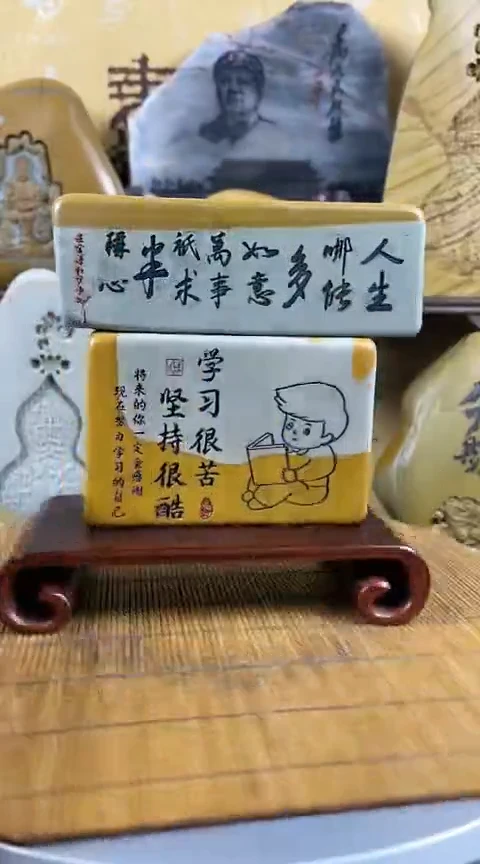 人生
哪能
多
如意
萬事
祇求
半
稱心
学习很苦
坚持很酷
将来的你一定会感谢
现在努力学习的自己